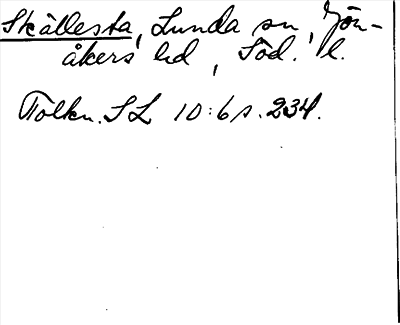 Skällesta, Lunda sn, Jön-
åkers hd, Söd. l.
Tolkn. SL 10:6 s. 234.